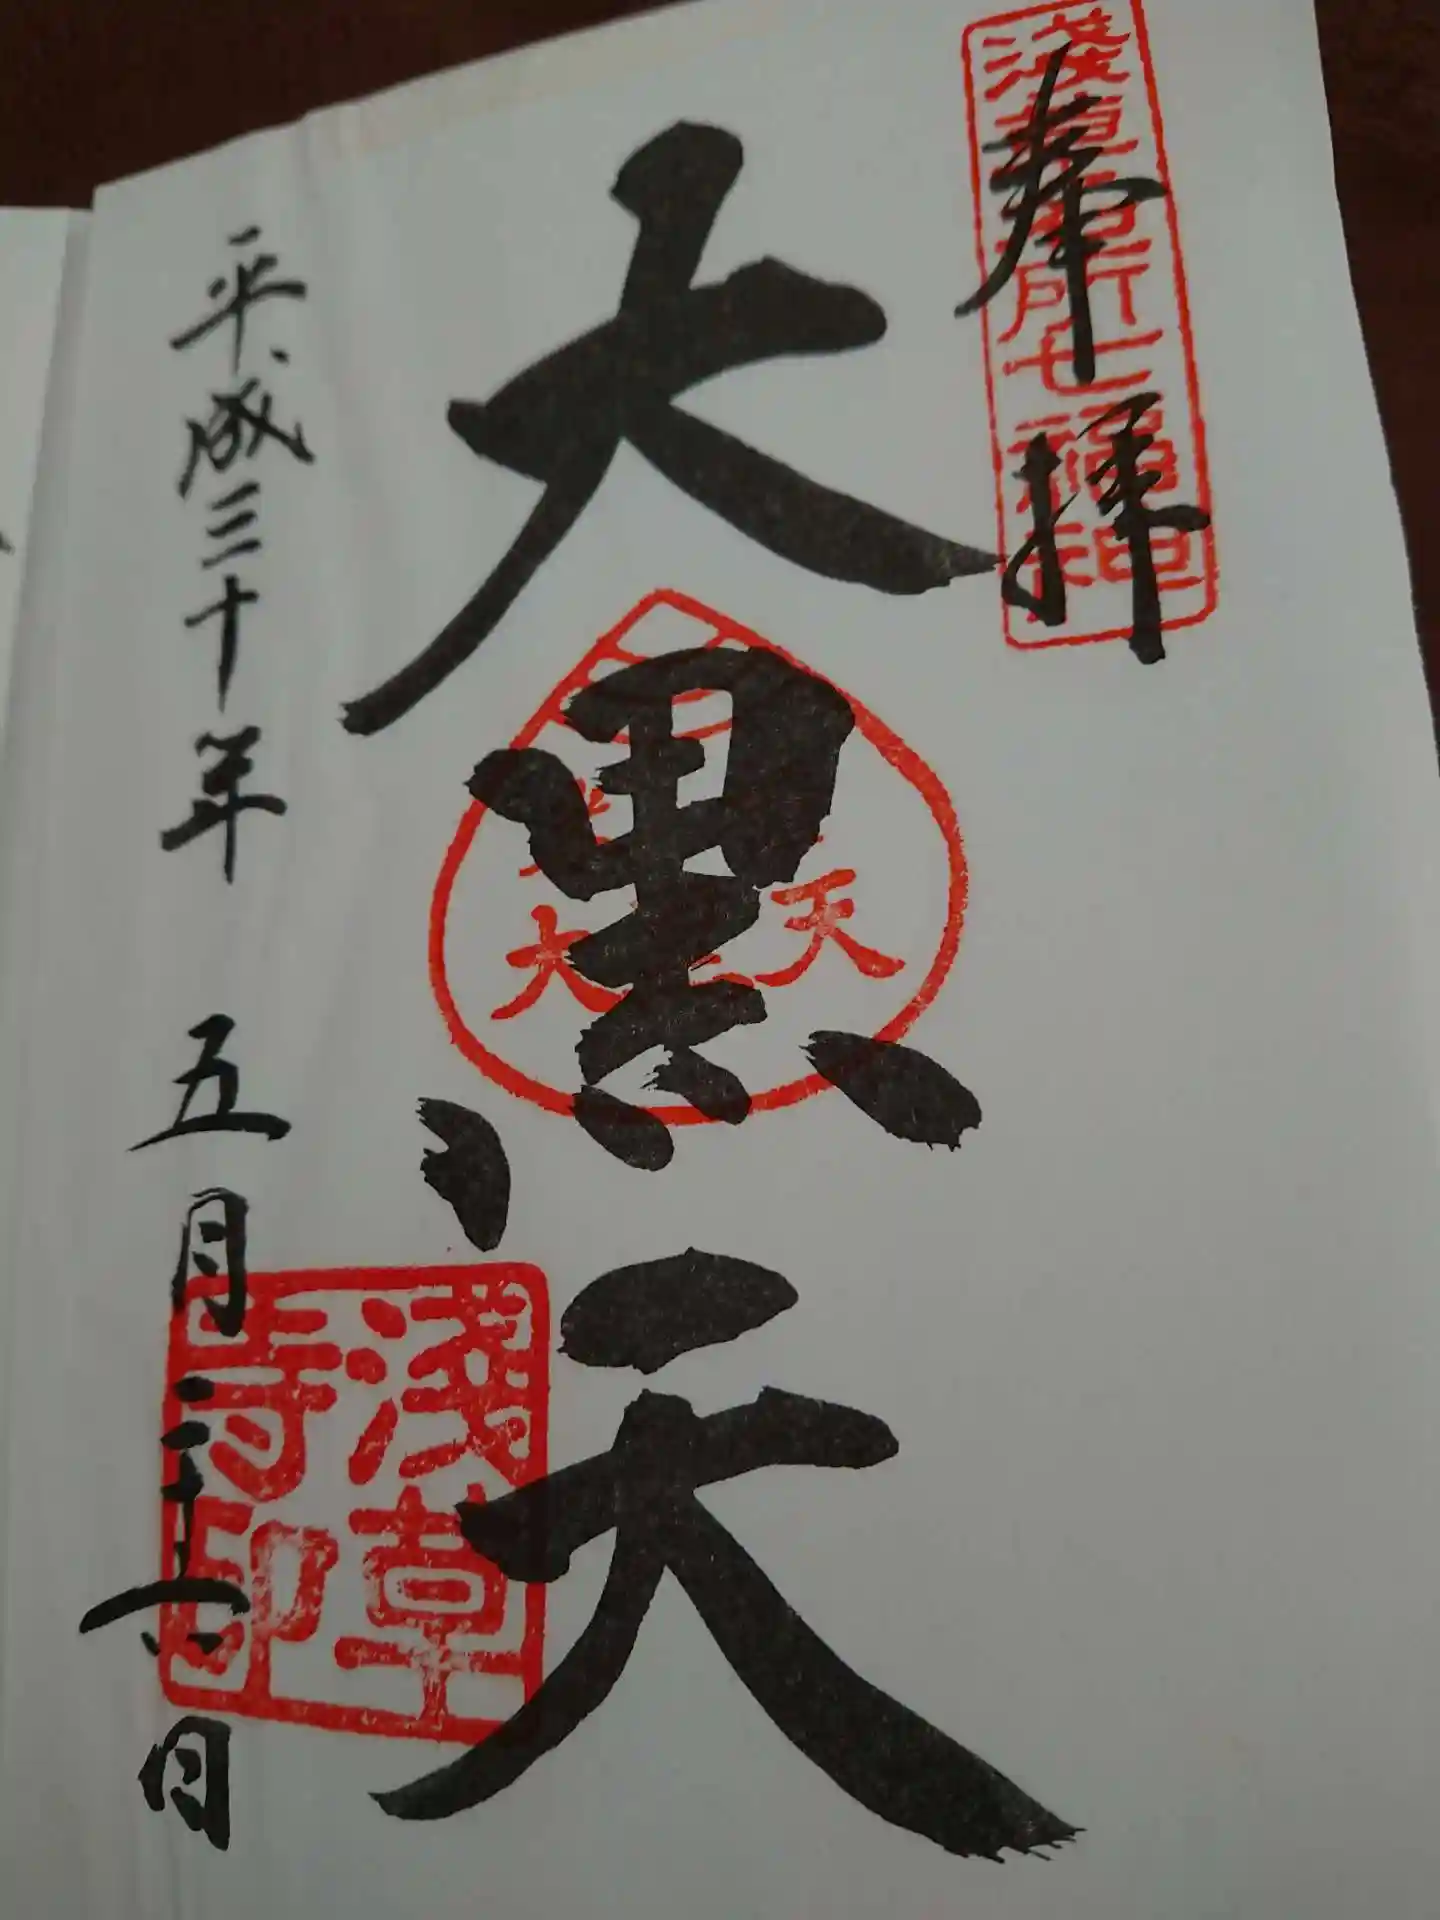 奉拝
淺草名所七福神
大黒天
大 天
淺草
寺印
平成三十年 五月二十六日